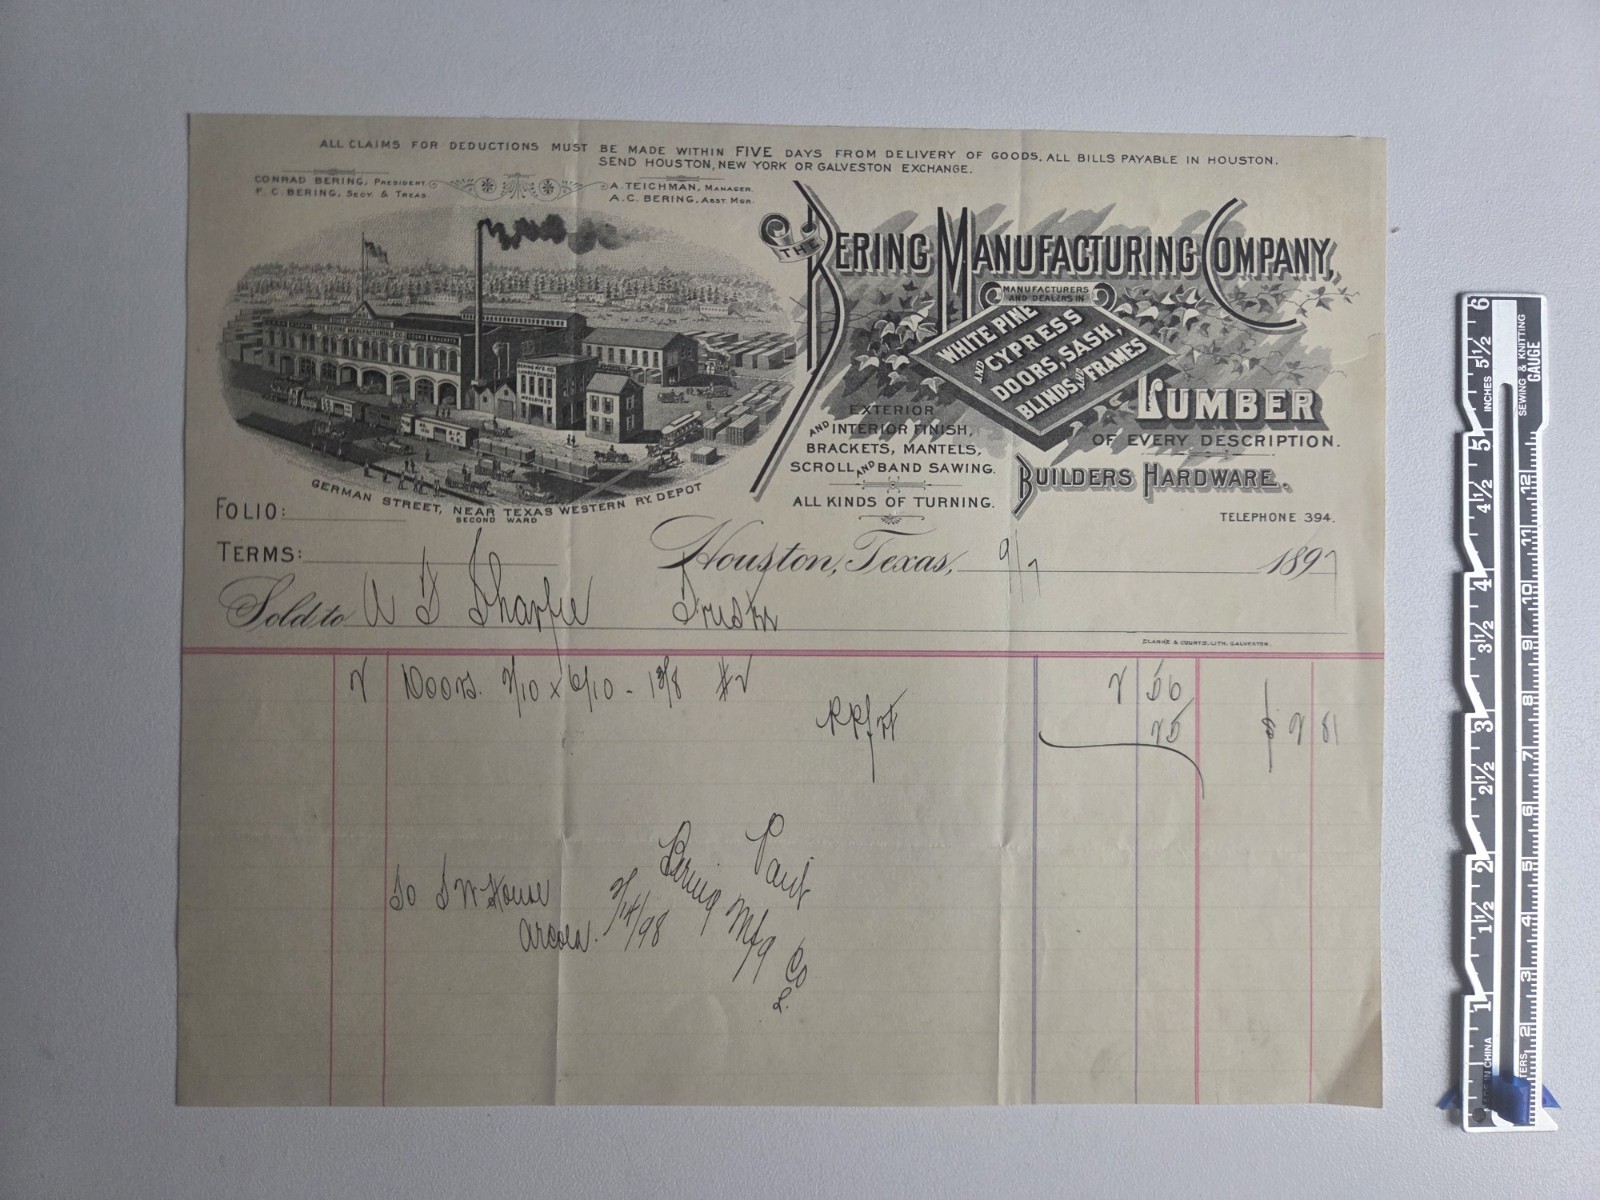 ALL CLAIMS FOR DEDUCTIONS MUST BE MADE WITHIN FIVE DAYS FROM DELIVERY OF GOODS. ALL BILLS PAYABLE IN HOUSTON.
SEND HOUSTON, NEW YORK OR GALVESTON EXCHANGE.
CONRAD BERING, PRESIDENT.
F. C. BERING, SECY. & TREAS.
A. TEICHMAN, MANAGER.
A. C. BERING, ASST MGR.
THE BERING MANUFACTURING COMPANY,
MANUFACTURERS
AND DEALERS IN
WHITE PINE
AND CYPRESS
DOORS, SASH,
BLINDS AND FRAMES
LUMBER
OF EVERY DESCRIPTION.
EXTERIOR
AND INTERIOR FINISH,
BRACKETS, MANTELS,
SCROLL AND BAND SAWING.
ALL KINDS OF TURNING.
BUILDERS HARDWARE.
TELEPHONE 394.
GERMAN STREET, NEAR TEXAS WESTERN RY. DEPOT
SECOND WARD
FOLIO:
TERMS:
Houston, Texas, 9/7 1897
Sold to A D Sharpe
CLARKE & COURTS, LITH. GALVESTON.
2 Doors. 2/10 x 6/10 - 1 3/8 #2 2 56
25 2 81
Paid
To J W House
Arcola.
2/14/98
Bering Mfg Co
6
5½
5
4½
4
3½
3
2½
2
1½
1
INCHES
SEWING & KNITTING
GAUGE
12
11
10
9
8
7
6
5
4
3
2